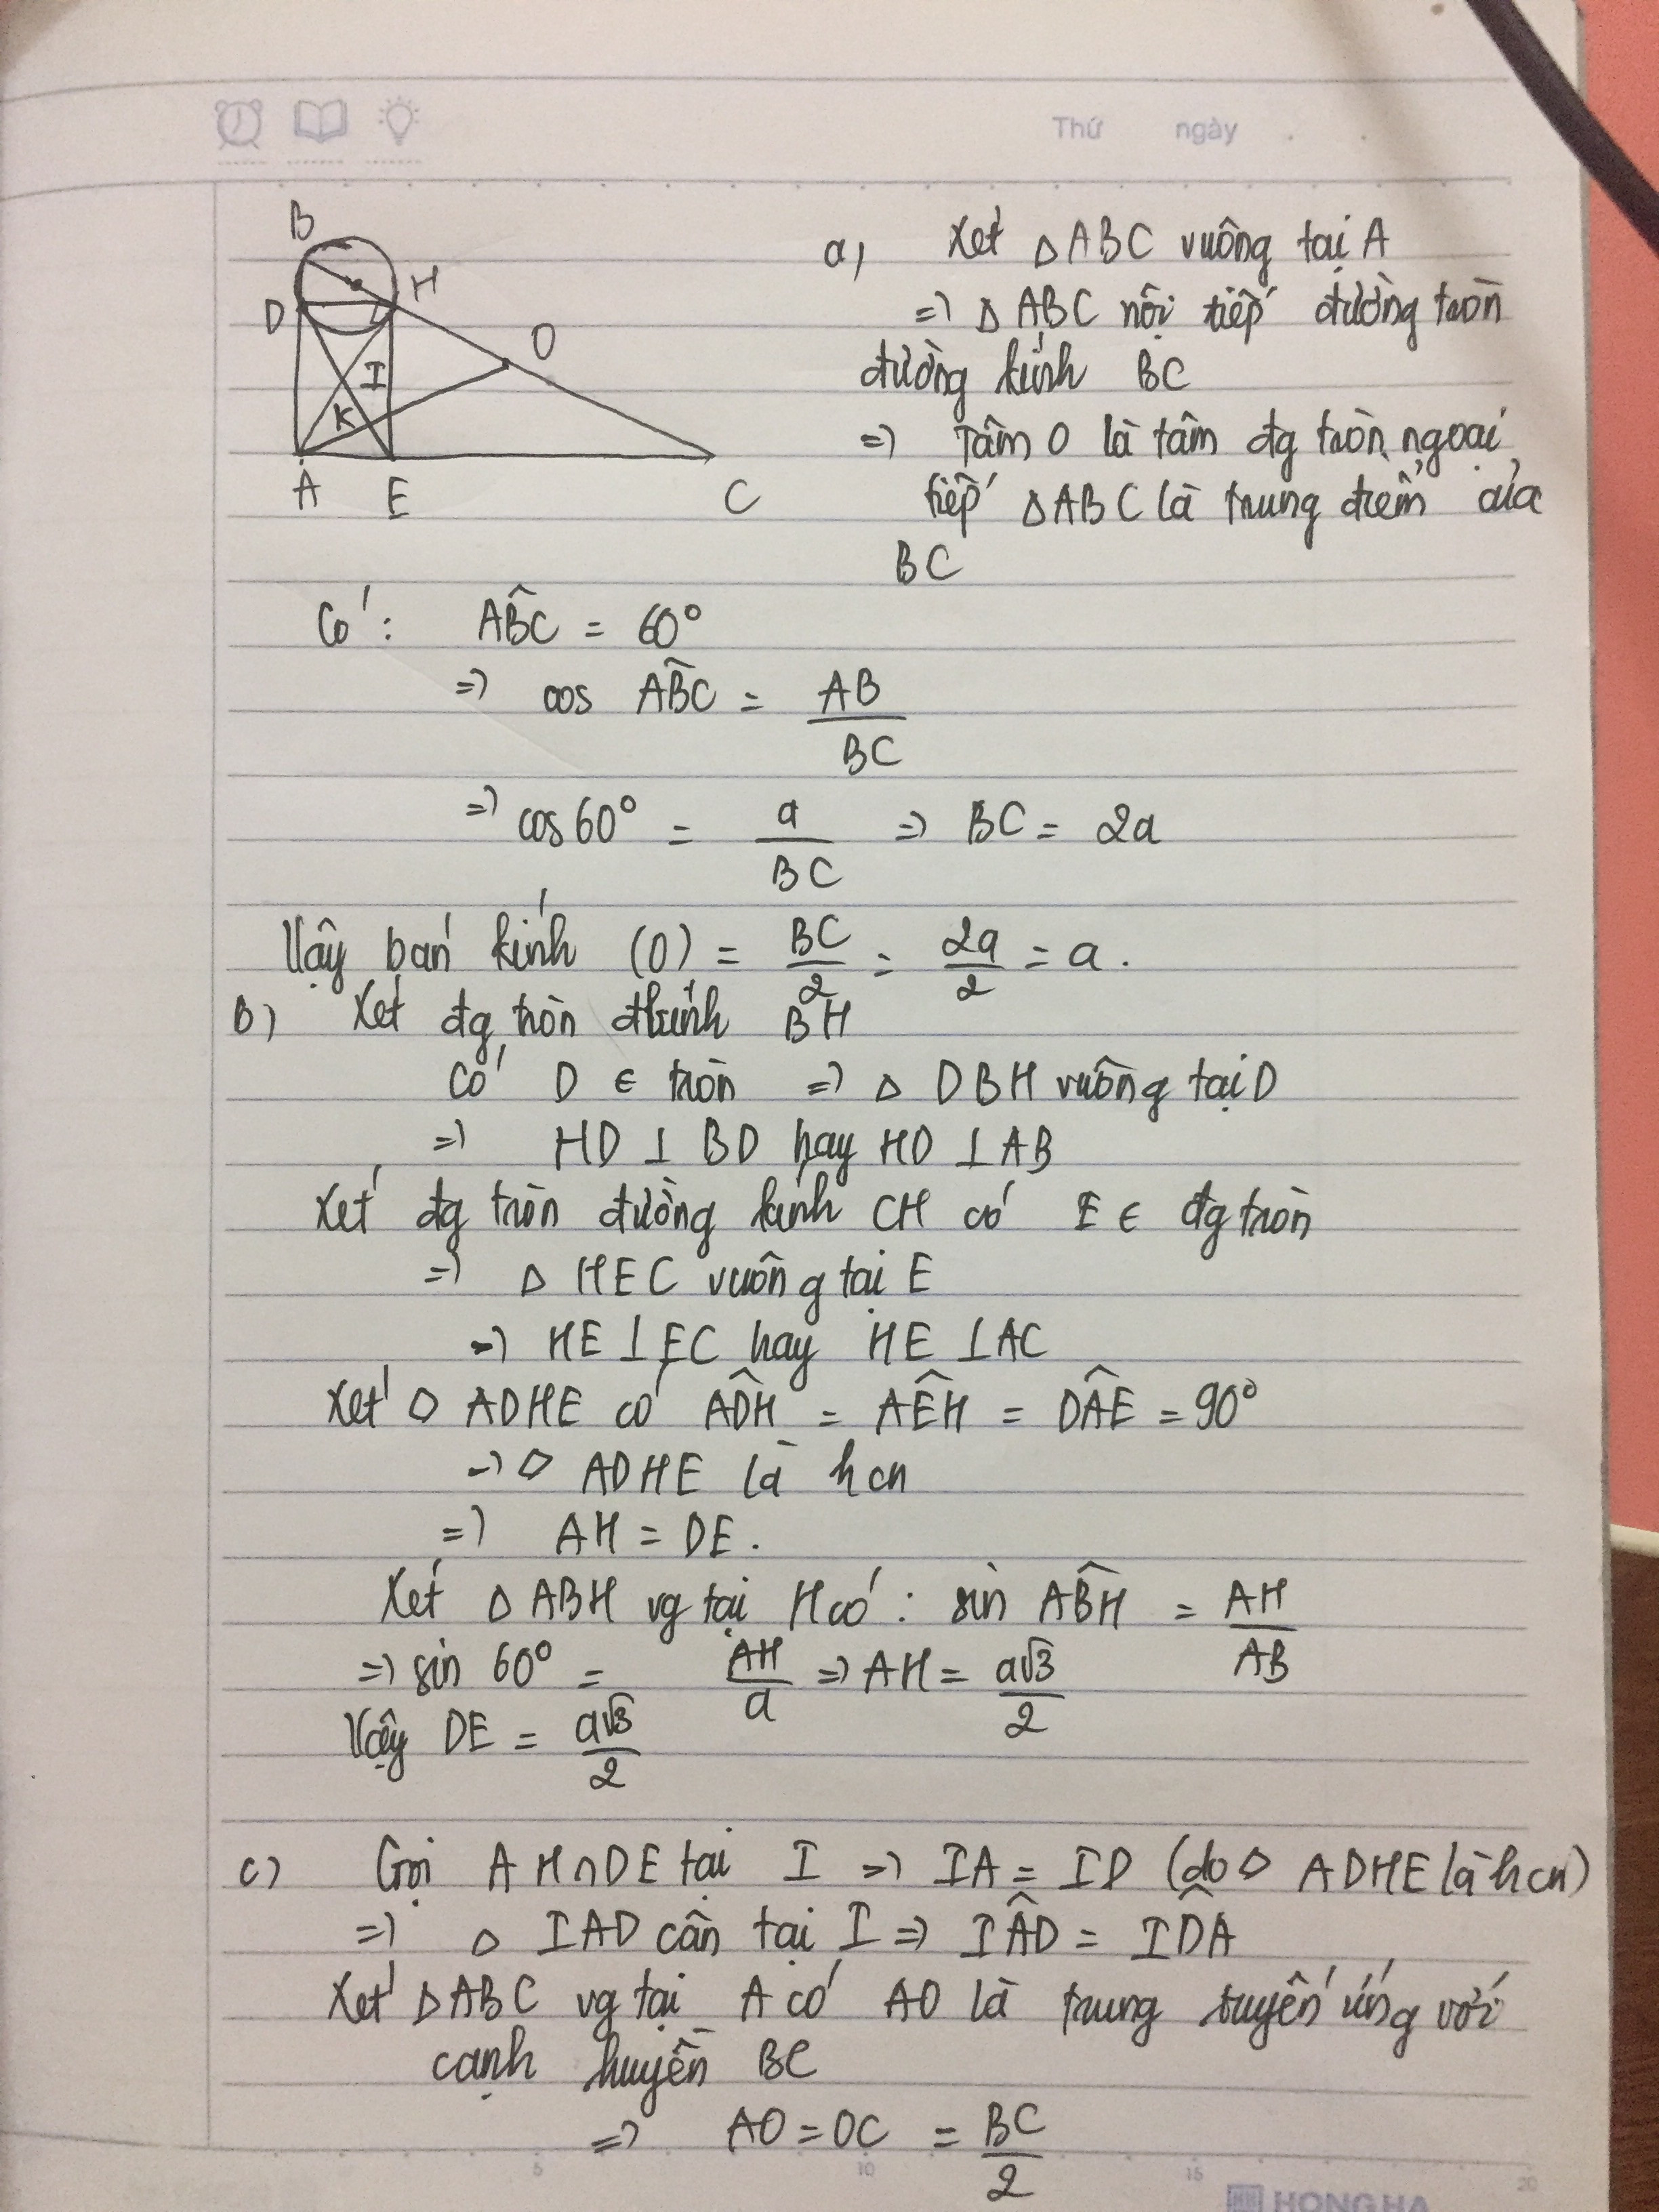 Thứ ngày . .
B
H
D
O
I
K
A E C
a, Xét △ABC vuông tại A
=> △ ABC nội tiếp đường tròn
đường kính BC
=> Tâm O là tâm đg tròn ngoại
tiếp △ABC là trung điểm của
BC
Có: ABĈ = 60°
=> cos ABĈ = AB/BC
=> cos60° = a/BC => BC = 2a
Vậy bán kính (O) = BC/2 = 2a/2 = a.
b) Xét đg tròn đkính BH
Có D ∈ tròn => △ DBH vuông tại D
=> HD ⊥ BD hay HD ⊥ AB
Xét đg tròn đường kính CH có E ∈ đg tròn
=> △ HEC vuông tại E
=> HE ⊥ EC hay HE ⊥ AC
Xét ◊ ADHE có AD̂H = AÊH = DÂE = 90°
=> ◊ ADHE là hcn
=> AH = DE.
Xét △ ABH vg tại H có: sin AB̂H = AH/AB
=> sin 60° = AH/a => AH = a√3/2
Vậy DE = a√3/2
c) Gọi AH∩DE tại I => IA = ID (do ◊ ADHE là hcn)
=> △ IAD cân tại I => IÂD = ID̂A
Xét △ABC vg tại A có AO là trung tuyến ứng với
cạnh huyền BC
=> AO = OC = BC/2
5 10 15 20
HONG HA